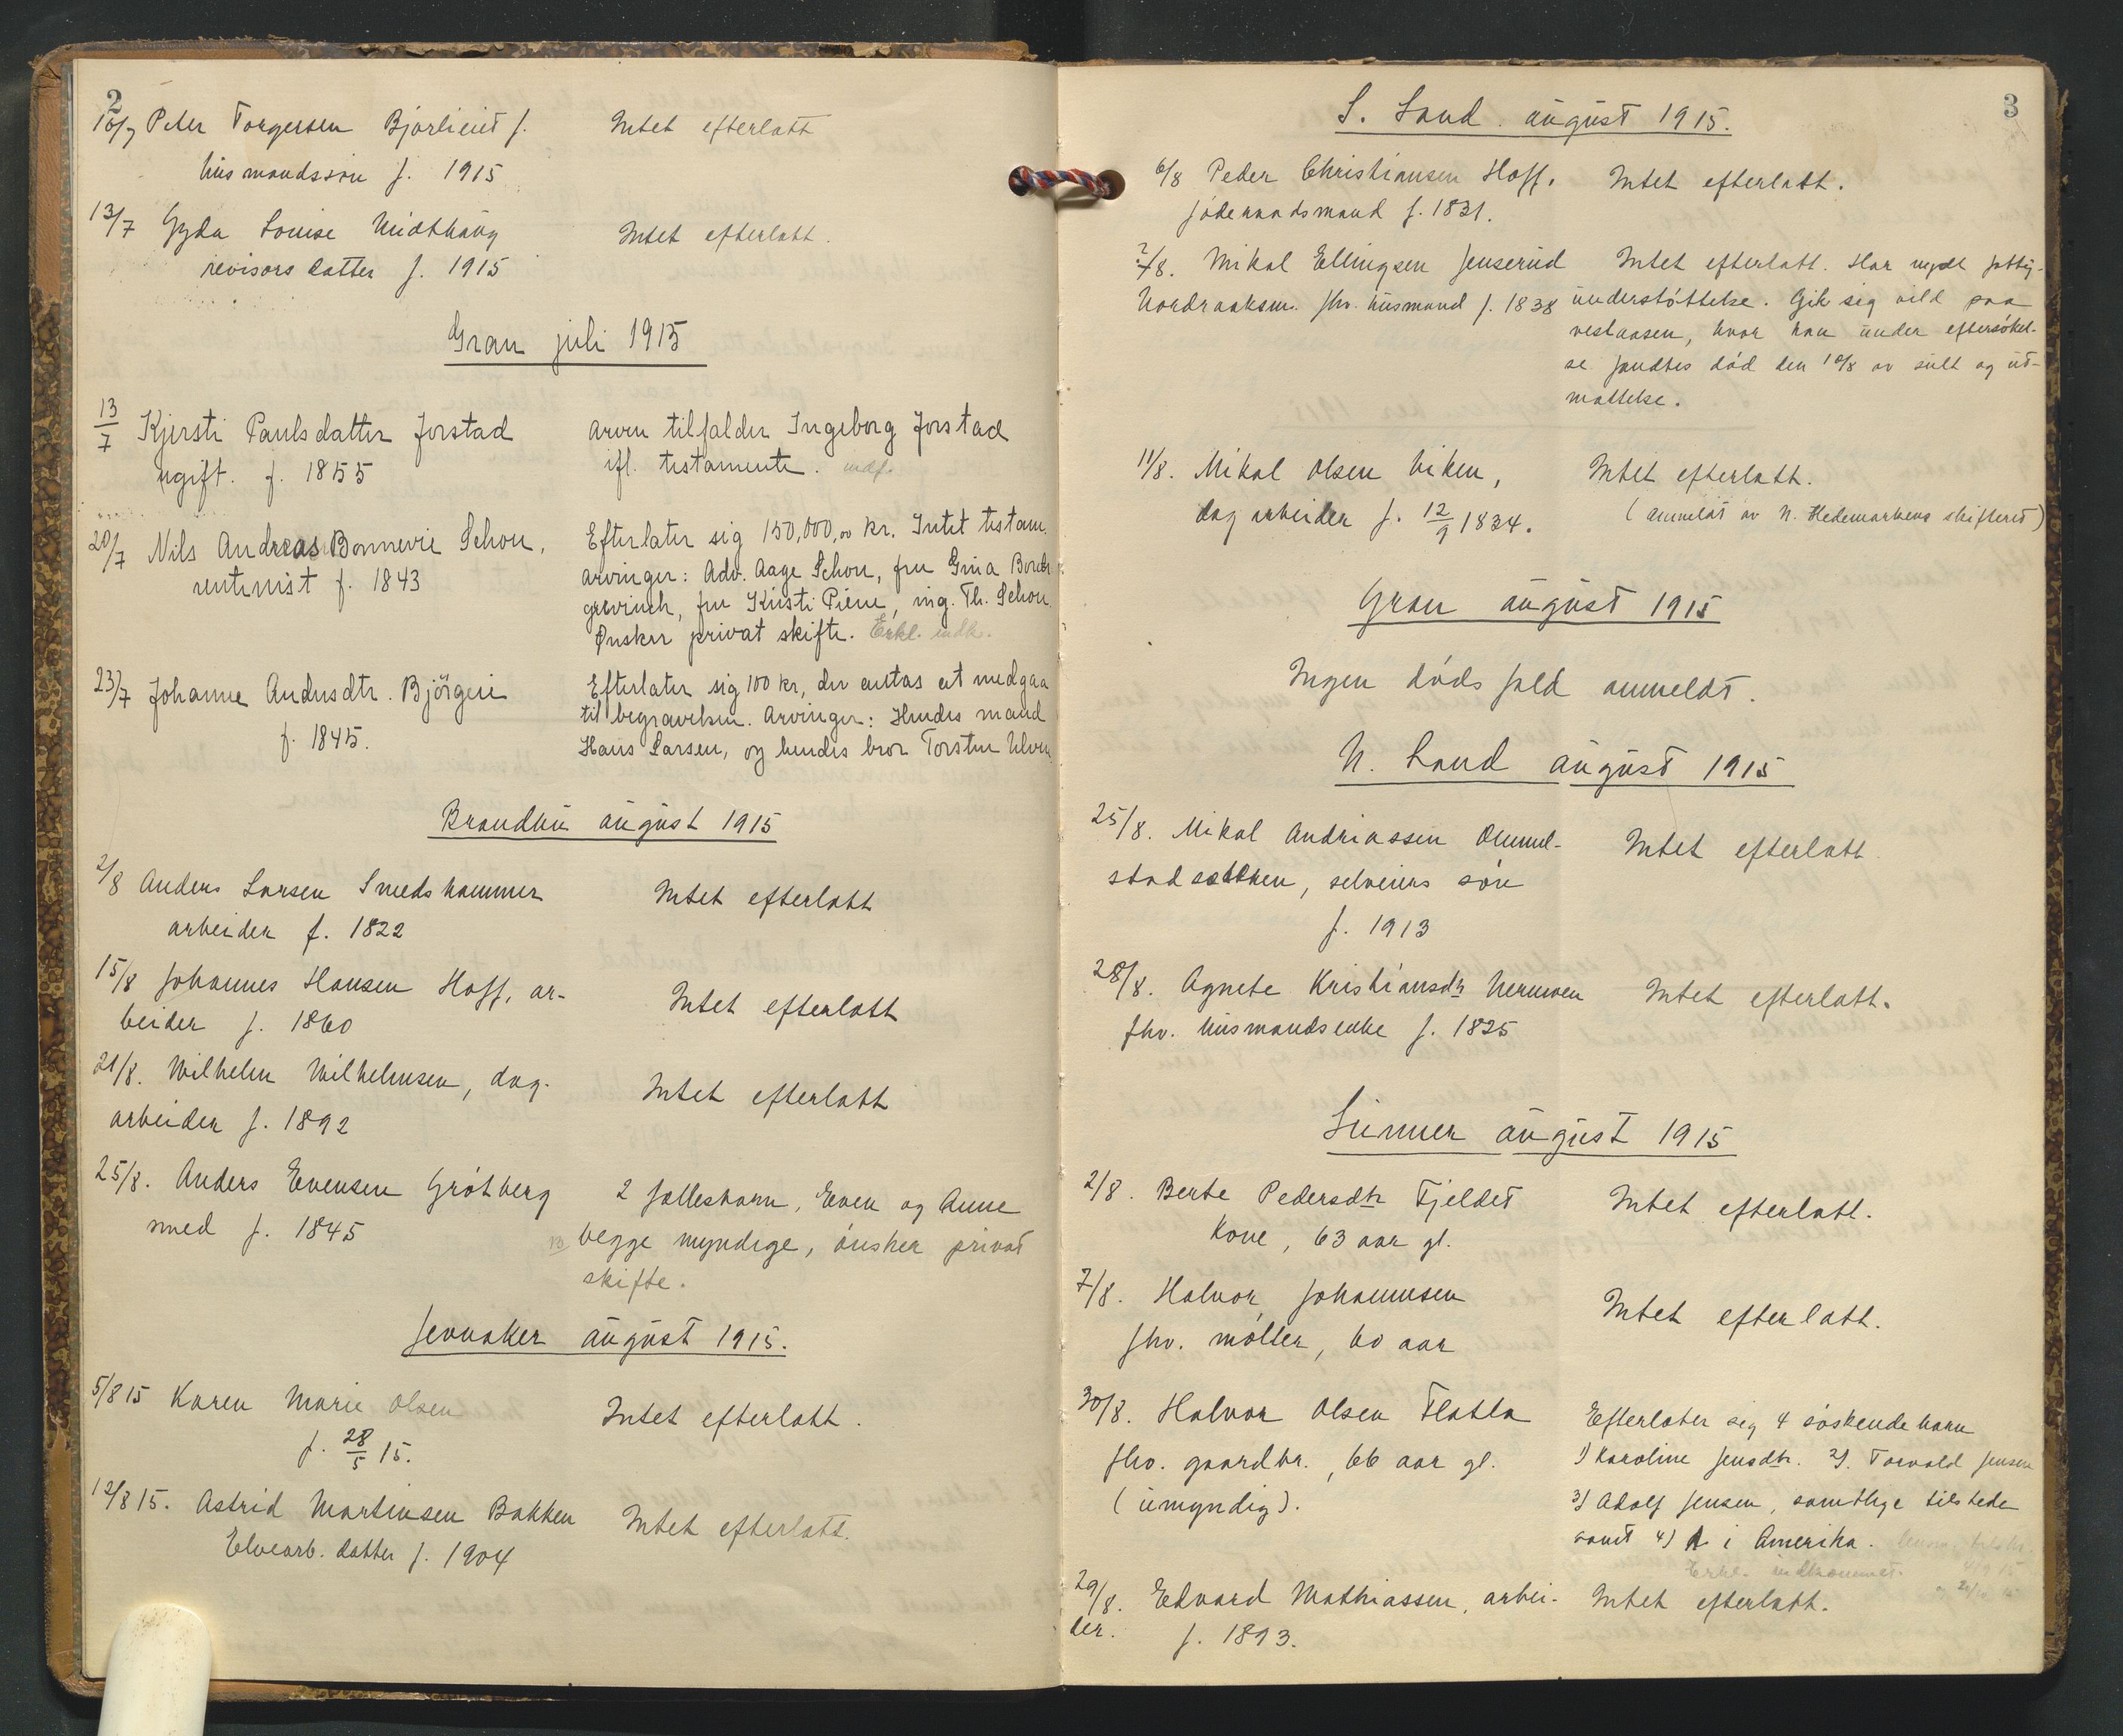 2
10/7 Peter Torgersen Bjørlieiet f.
husmandssøn f. 1915
Intet efterlatt
13/7 Gyda Louise Midthaug
revisors datter f. 1915
Intet efterlatt.
Gran juli 1915
13/7 Kjersti Paulsdatter Jorstad
ugift. f. 1855
Arven tilfalder Ingeborg Jorstad
ifl. testamente. indf.
20/7 Nils Andreas Bonnevie Schou,
rentenist f. 1843
Efterlater sig 150,000,00 kr. Intet testam.
Arvinger: Adv. Aage Schou, fru Gina Borch
grevinck, fru Kirsti Piene, ing. Th. Schou.
Ønsker privat skifte. Erkl. indk.
23/7 Johanne Andersdtr. Bjørgeie
f. 1845.
Efterlater sig 100 kr, der antas at medgaa
til begravelsen. Arvinger: Hendes mand
Hans Larsen, og hendes bror Torsten Ulven
Brandbu august 1915
2/8 Anders Larsen Smedshammer
arbeider f. 1822
Intet efterlatt
15/8 Johannes Hansen Hoff, ar-
beider f. 1860
Intet efterlatt
21/8. Wilhelm Wilhelmsen, dag-
arbeider f. 1892
Intet efterlatt
25/8. Anders Evensen Gröthberg
smed f. 1845
2 fællesbarn, Even og Anne
begge myndige, ønsker privat
skifte.
Jevnaker august 1915.
5/8 15 Karen Marie Olsen
f. 28/5 15.
Intet efterlatt.
12/8 15. Astrid Martinsen Bakken
Elvearb. datter f. 1904
Intet efterlatt.
3
S. Land august 1915.
6/8 Peder Christiansen Hoff.
føderaadsmand f. 1831.
Intet efterlatt.
?/8. Mikal Ellingsen Jenserud
Nordraaksm. fhv. husmand f. 1838
Intet efterlatt. Har nydt fattig-
understøttelse. Gik sig vild paa
vestaasen, hvor han under eftersøkel-
se fandtes død den 10/8 av sult og ut-
mattelse.
11/8. Mikal Olsen Viken,
dagarbeider f. 12/9 1834.
Intet efterlatt.
(anmeldt av N. Hedemarkens skifteret)
Gran august 1915
Ingen dødsfald anmeldt.
N. Land august 1915
25/8. Mikal Andriassen Ommel-
stadsæthen, selveiers søn
f. 1913
Intet efterlatt.
28/8. Agnete Kristiansdtr
fhv. husmandsenke f. 1825
Intet efterlatt.
Lunner august 1915
2/8. Berte Pedersdtr Fjeldet
kone, 63 aar gl.
Intet efterlatt.
7/8. Halvor Johannesen
fhv. møller, 60 aar
Intet efterlatt.
30/8. Halvor Olsen Flatla
fhv. gaardbr., 66 aar gl.
(umyndig).
Efterlater sig 4 søskendebarn
1) Karoline Jensdtr. 2). Torvald Jensen
3) Adolf Jensen, samtlige tilstede
samt 4) i Amerika.
Erkl. indkommet.
29/8. Edvard Mathiassen, arbei-
der. f. 1893.
Intet efterlatt.